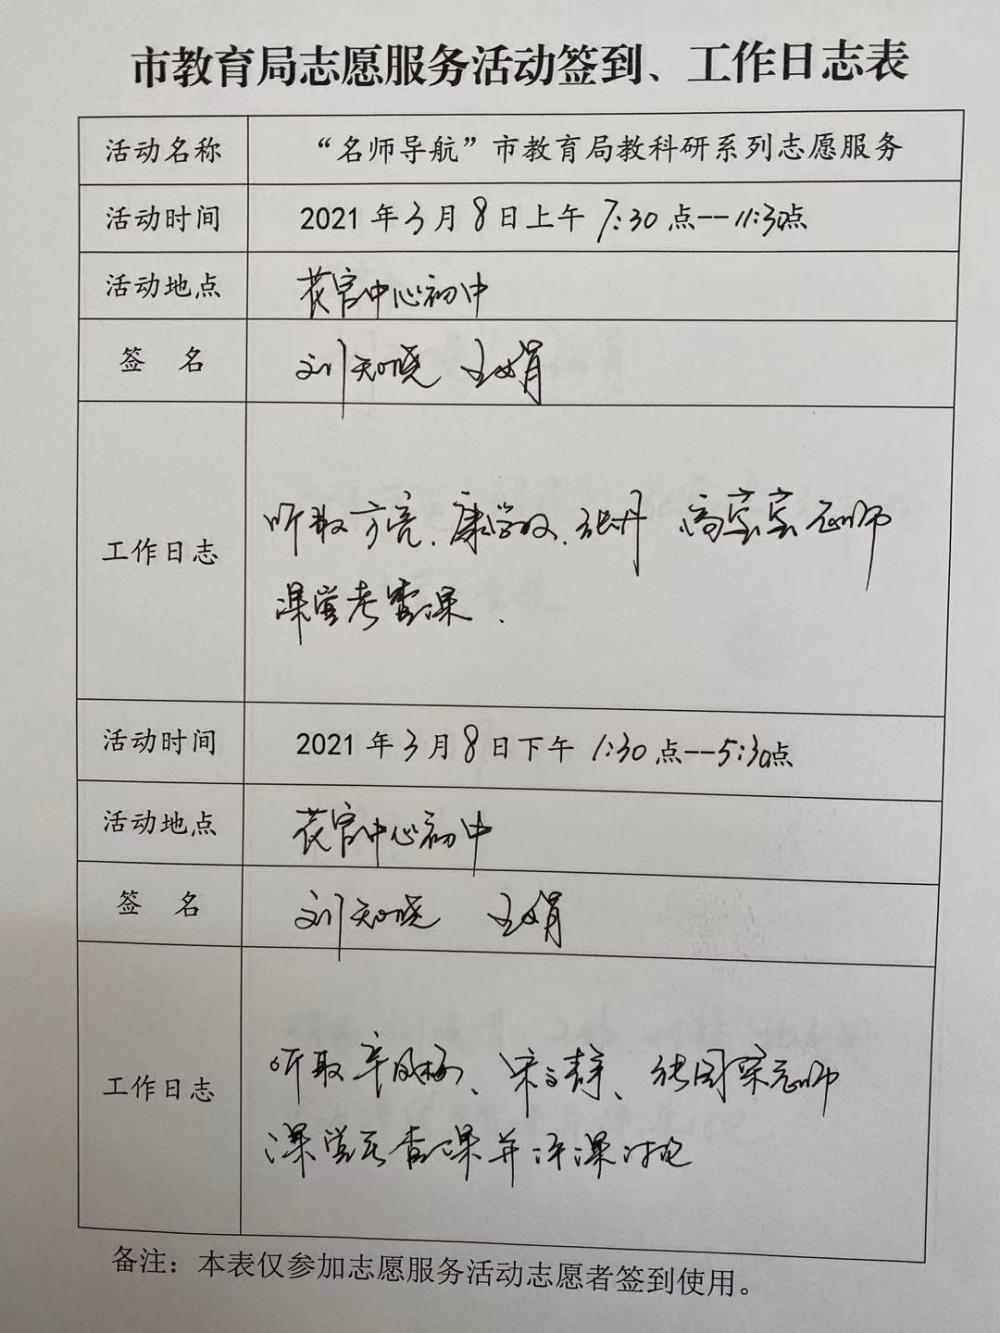 市教育局志愿服务活动签到、工作日志表
活动名称 “名师导航”市教育局教科研系列志愿服务
活动时间 2021年3月8日上午7:30点--11:30点
活动地点 花官中心初中
签 名 刘知晓 王娟
听取方亮、康学政、张丹 高宝宝老师
工作日志
课堂考查课.
活动时间 2021年3月8日下午1:30点--5:30点
活动地点 花官中心初中
签 名 刘知晓 王娟
听取辛凤梅、宋文静、张国荣老师
工作日志
课堂考查课并评课讨论
备注：本表仅参加志愿服务活动志愿者签到使用。